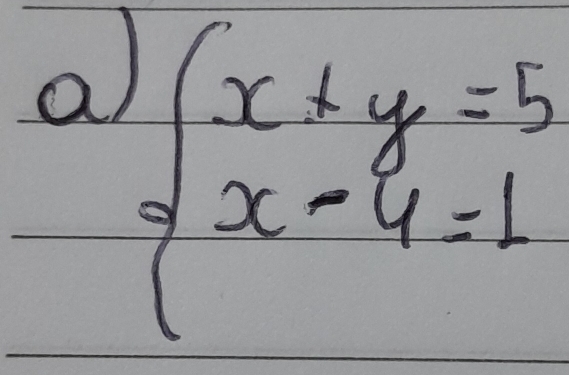 a) { x + y = 5
x - y = 1